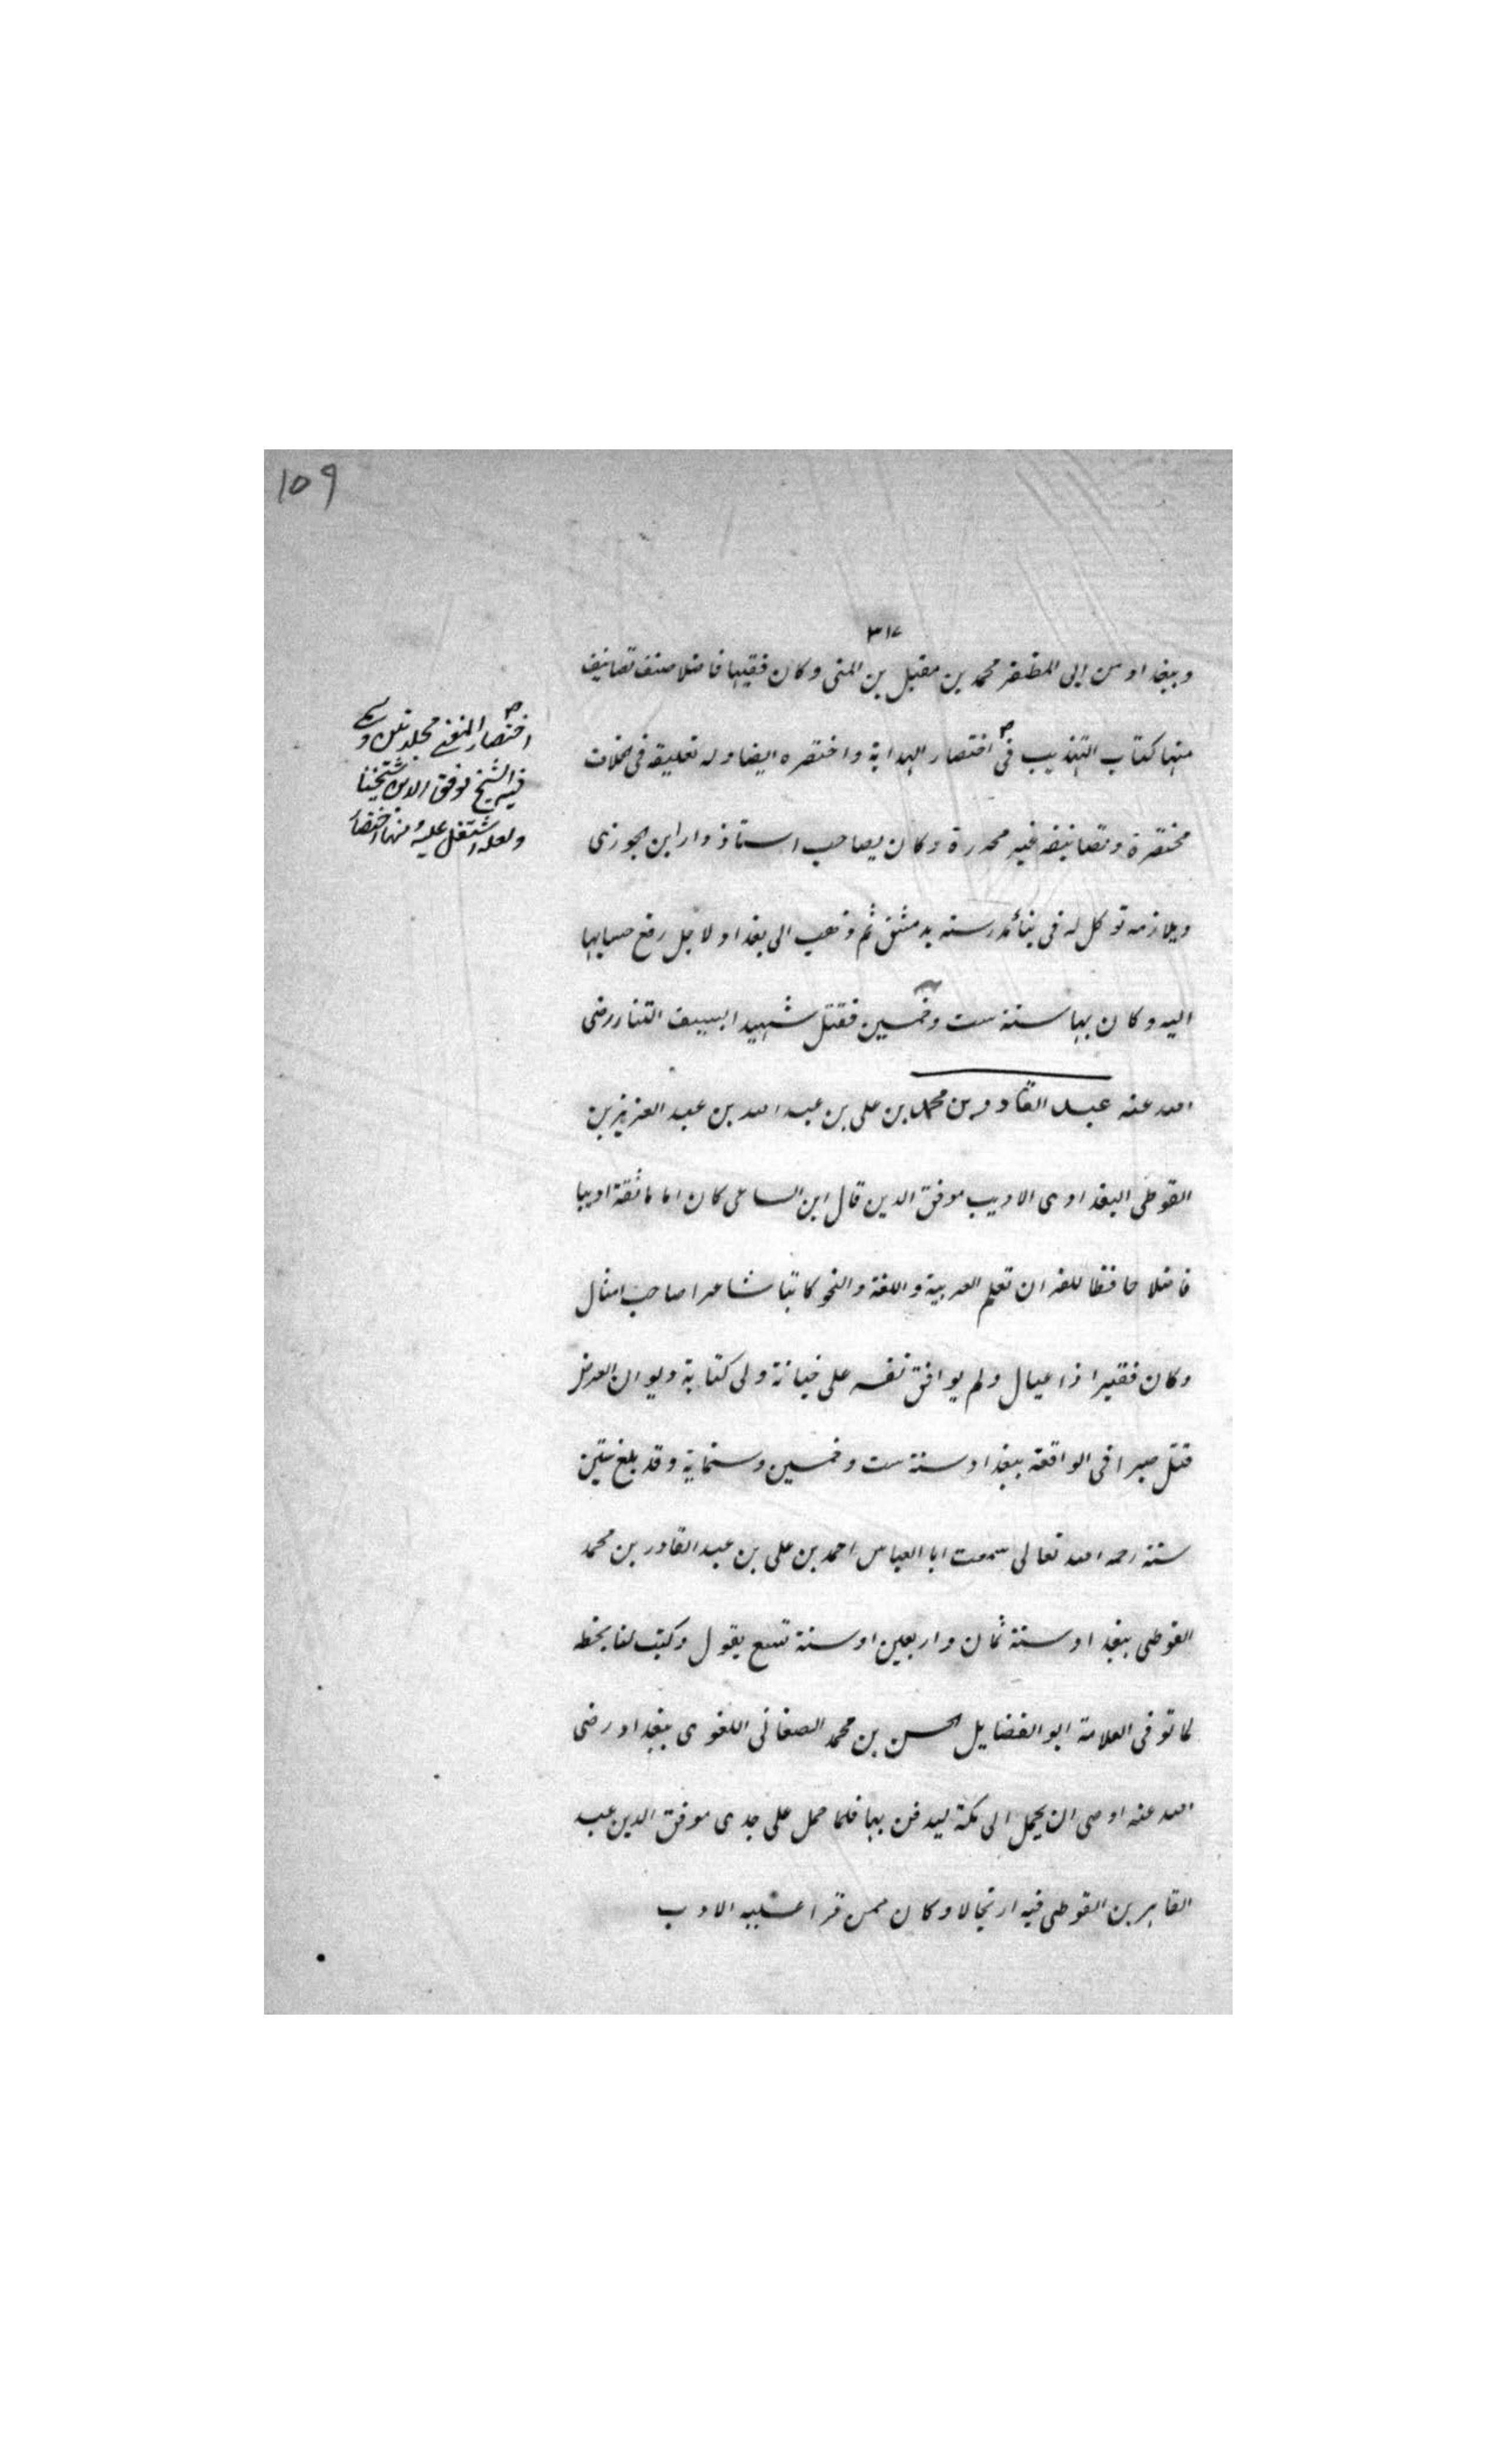 109
٣١٧
وببغداد من ابى المظفر محمد بن مقبل بن المنى وكان فقيها فاضلا صنف تصانيف
منها كتاب التهذيب فى اختصار الهداية واختصره ايضا وله تعليقه فى الخلاف
مختصرة وتصانيفه غير محررة وكان يصاحب استاذ دار ابن الجوزى
ويلازمه توكل له فى بناء مدرسته بدمشق ثم ذهب الى بغداد لاجل رفع حسابها
اليه وكان بها سنة ست وخمسين فقتل شهيدا بسيف التتار رضى
الله عنه عبد القادر بن محمد بن على بن عبد الله بن عبد العزيز بن
الفوطى البغدادى الاديب موفق الدين قال ابن الساعى كان اماما ثقة اديبا
فاضلا حافظا للقران تعلم العربية واللغة والنحو كاتبا شاعرا صاحب امثال
وكان فقيرا ذا عيال ولم يوافق نفسه على خيانة ولى كتابة ديوان العرض
قتل صبرا فى الواقعة ببغداد سنة ست وخمسين وستماية وقد بلغ ستين
سنة رحمه الله تعالى سمعت ابا العباس احمد بن على بن عبد القادر بن محمد
الفوطى ببغداد سنة ثمان واربعين او سنة تسع يقول وكتب لنا بخطه
لما توفى العلامة ابو الفضايل الحسن بن محمد الصغانى اللغوى ببغداد رضى
الله عنه اوصى ان يحمل الى مكة ليدفن بها فلما حمل على جدى موفق الدين عبد
القاهر بن الفوطى فيه ارتجالا وكان ممن قرا عليه الادب
اختصار المغنى مجلدين
الشيخ موفق الدين شيخنا
ولعله اشتغل عليه ومنها اختصار